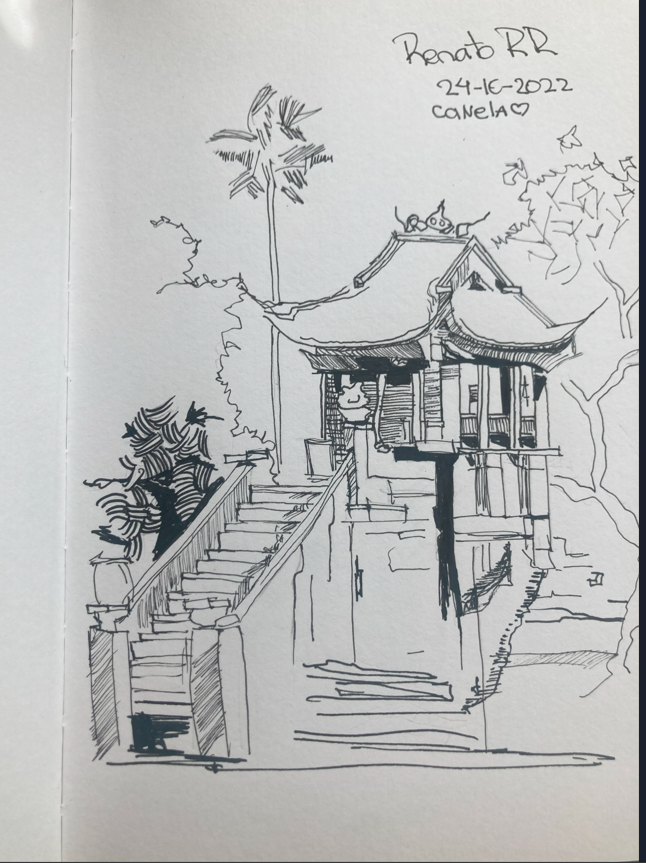 Renato RR
24-1€-2022
CANelA♡